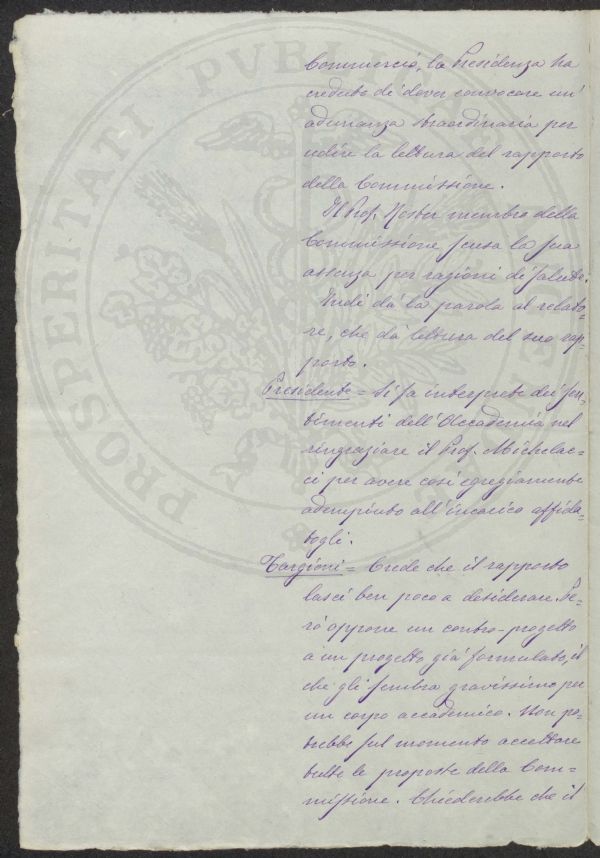 Commercio, la Presidenza ha
creduto di dover convocare un'
adunanza straordinaria per
udire la lettura del rapporto
della Commissione.
Il Prof. Roster membro della
Commissione scusa la sua
assenza per ragioni di salute.
Indi dà la parola al relato-
re, che dà lettura del suo rap-
porto.
Presidente = Si fa interprete dei sen-
timenti dell'Accademia nel
ringraziare il Prof. Michelac-
ci per avere così egregiamente
adempiuto all'incarico affida-
togli.
Targioni = Crede che il rapporto
lasci ben poco a desiderare. Pe-
rò oppone un contro-progetto
a un progetto già formulato, il
che gli sembra gravissimo per
un corpo accademico. Non po-
trebbe sul momento accettare
tutte le proposte della Com-
missione. Chiederebbe che il
PROSPERITATI PVBLICAE